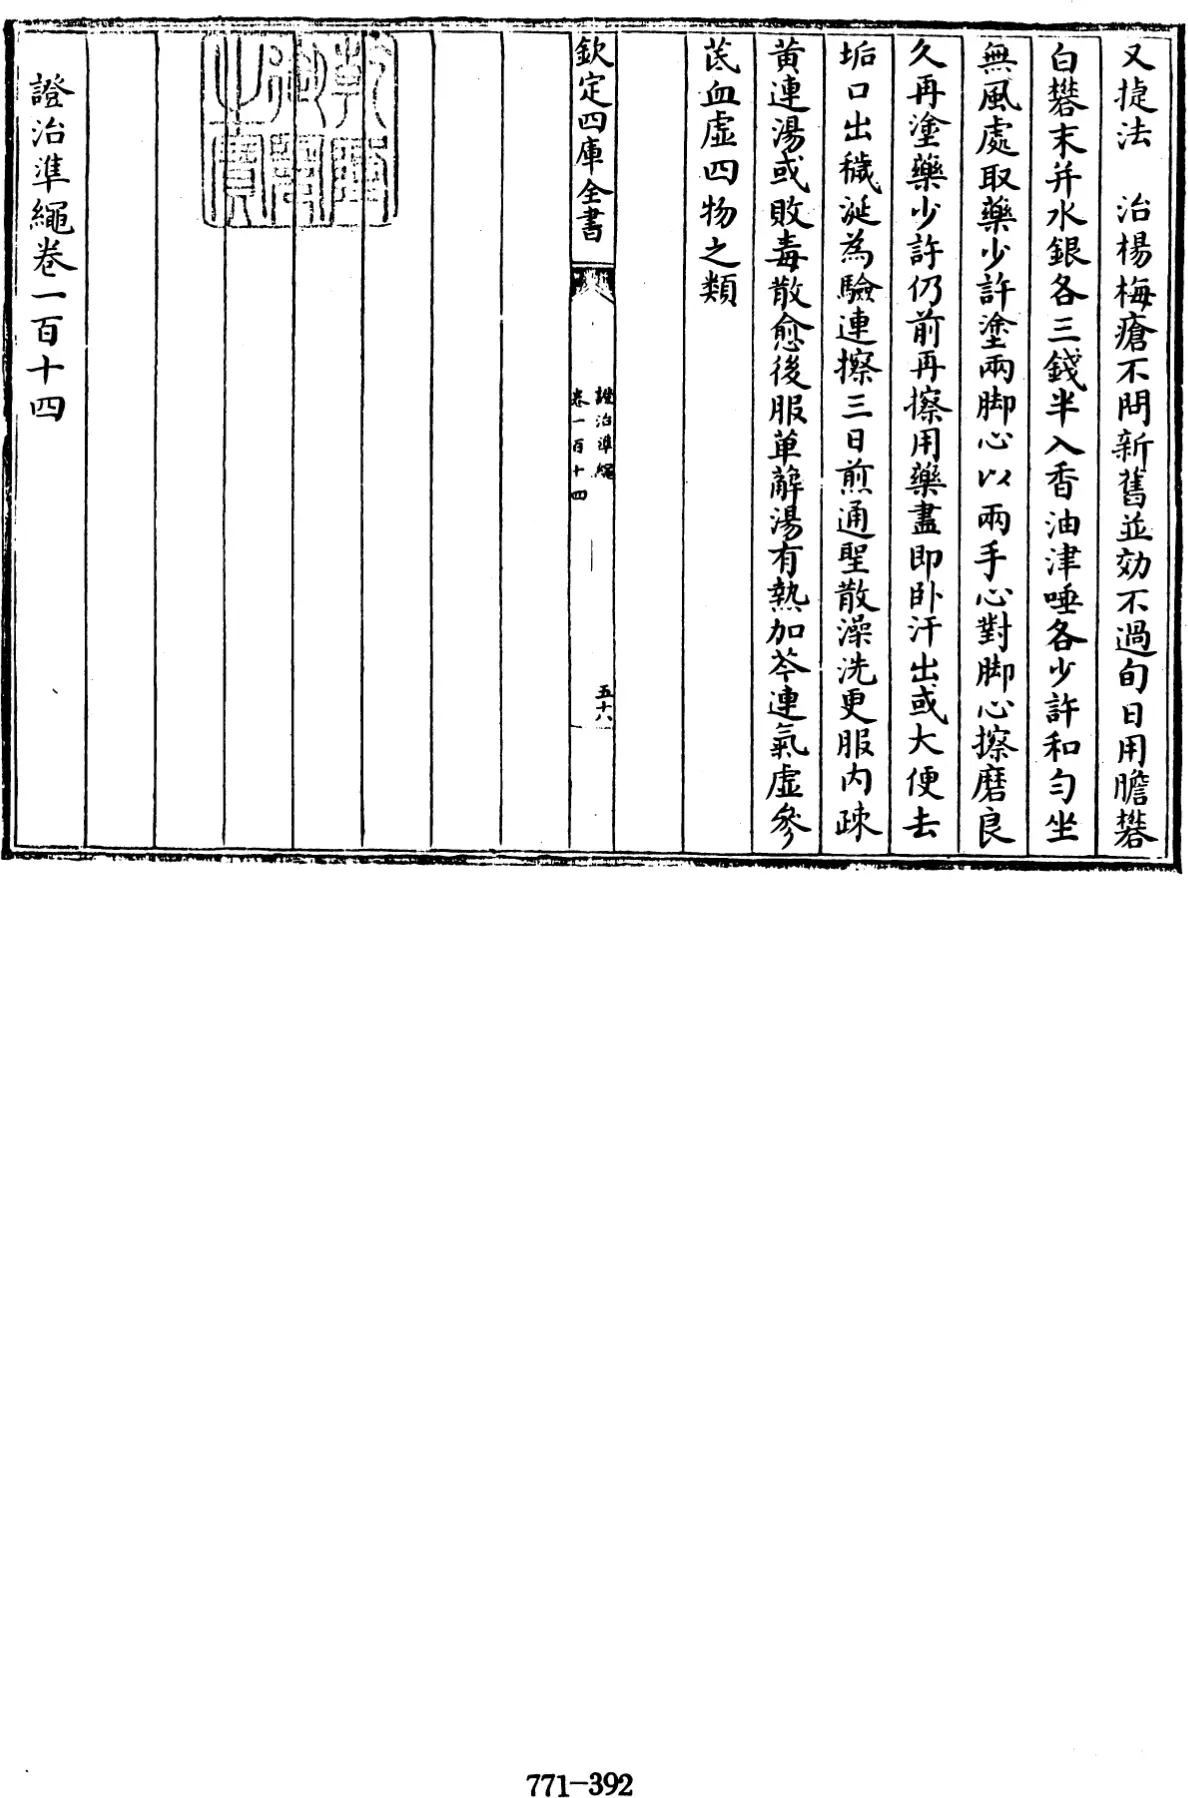 又捷法　治楊梅瘡不問新舊並効不過旬日用膽礬
白礬末并水銀各三錢半入香油津唾各少許和勻坐
無風處取藥少許塗兩脚心以兩手心對脚心擦磨良
久再塗藥少許仍前再擦用藥盡即卧汗出或大便去
垢口出穢涎為驗連擦三日煎通聖散澡洗更服内疎
黄連湯或敗毒散愈後服萆薢湯有熱加芩連氣虛參
茋血虛四物之類
欽定四庫全書
證治準繩
卷一百十四
五十八
乾隆御覽之寶
證治準繩卷一百十四
771-392